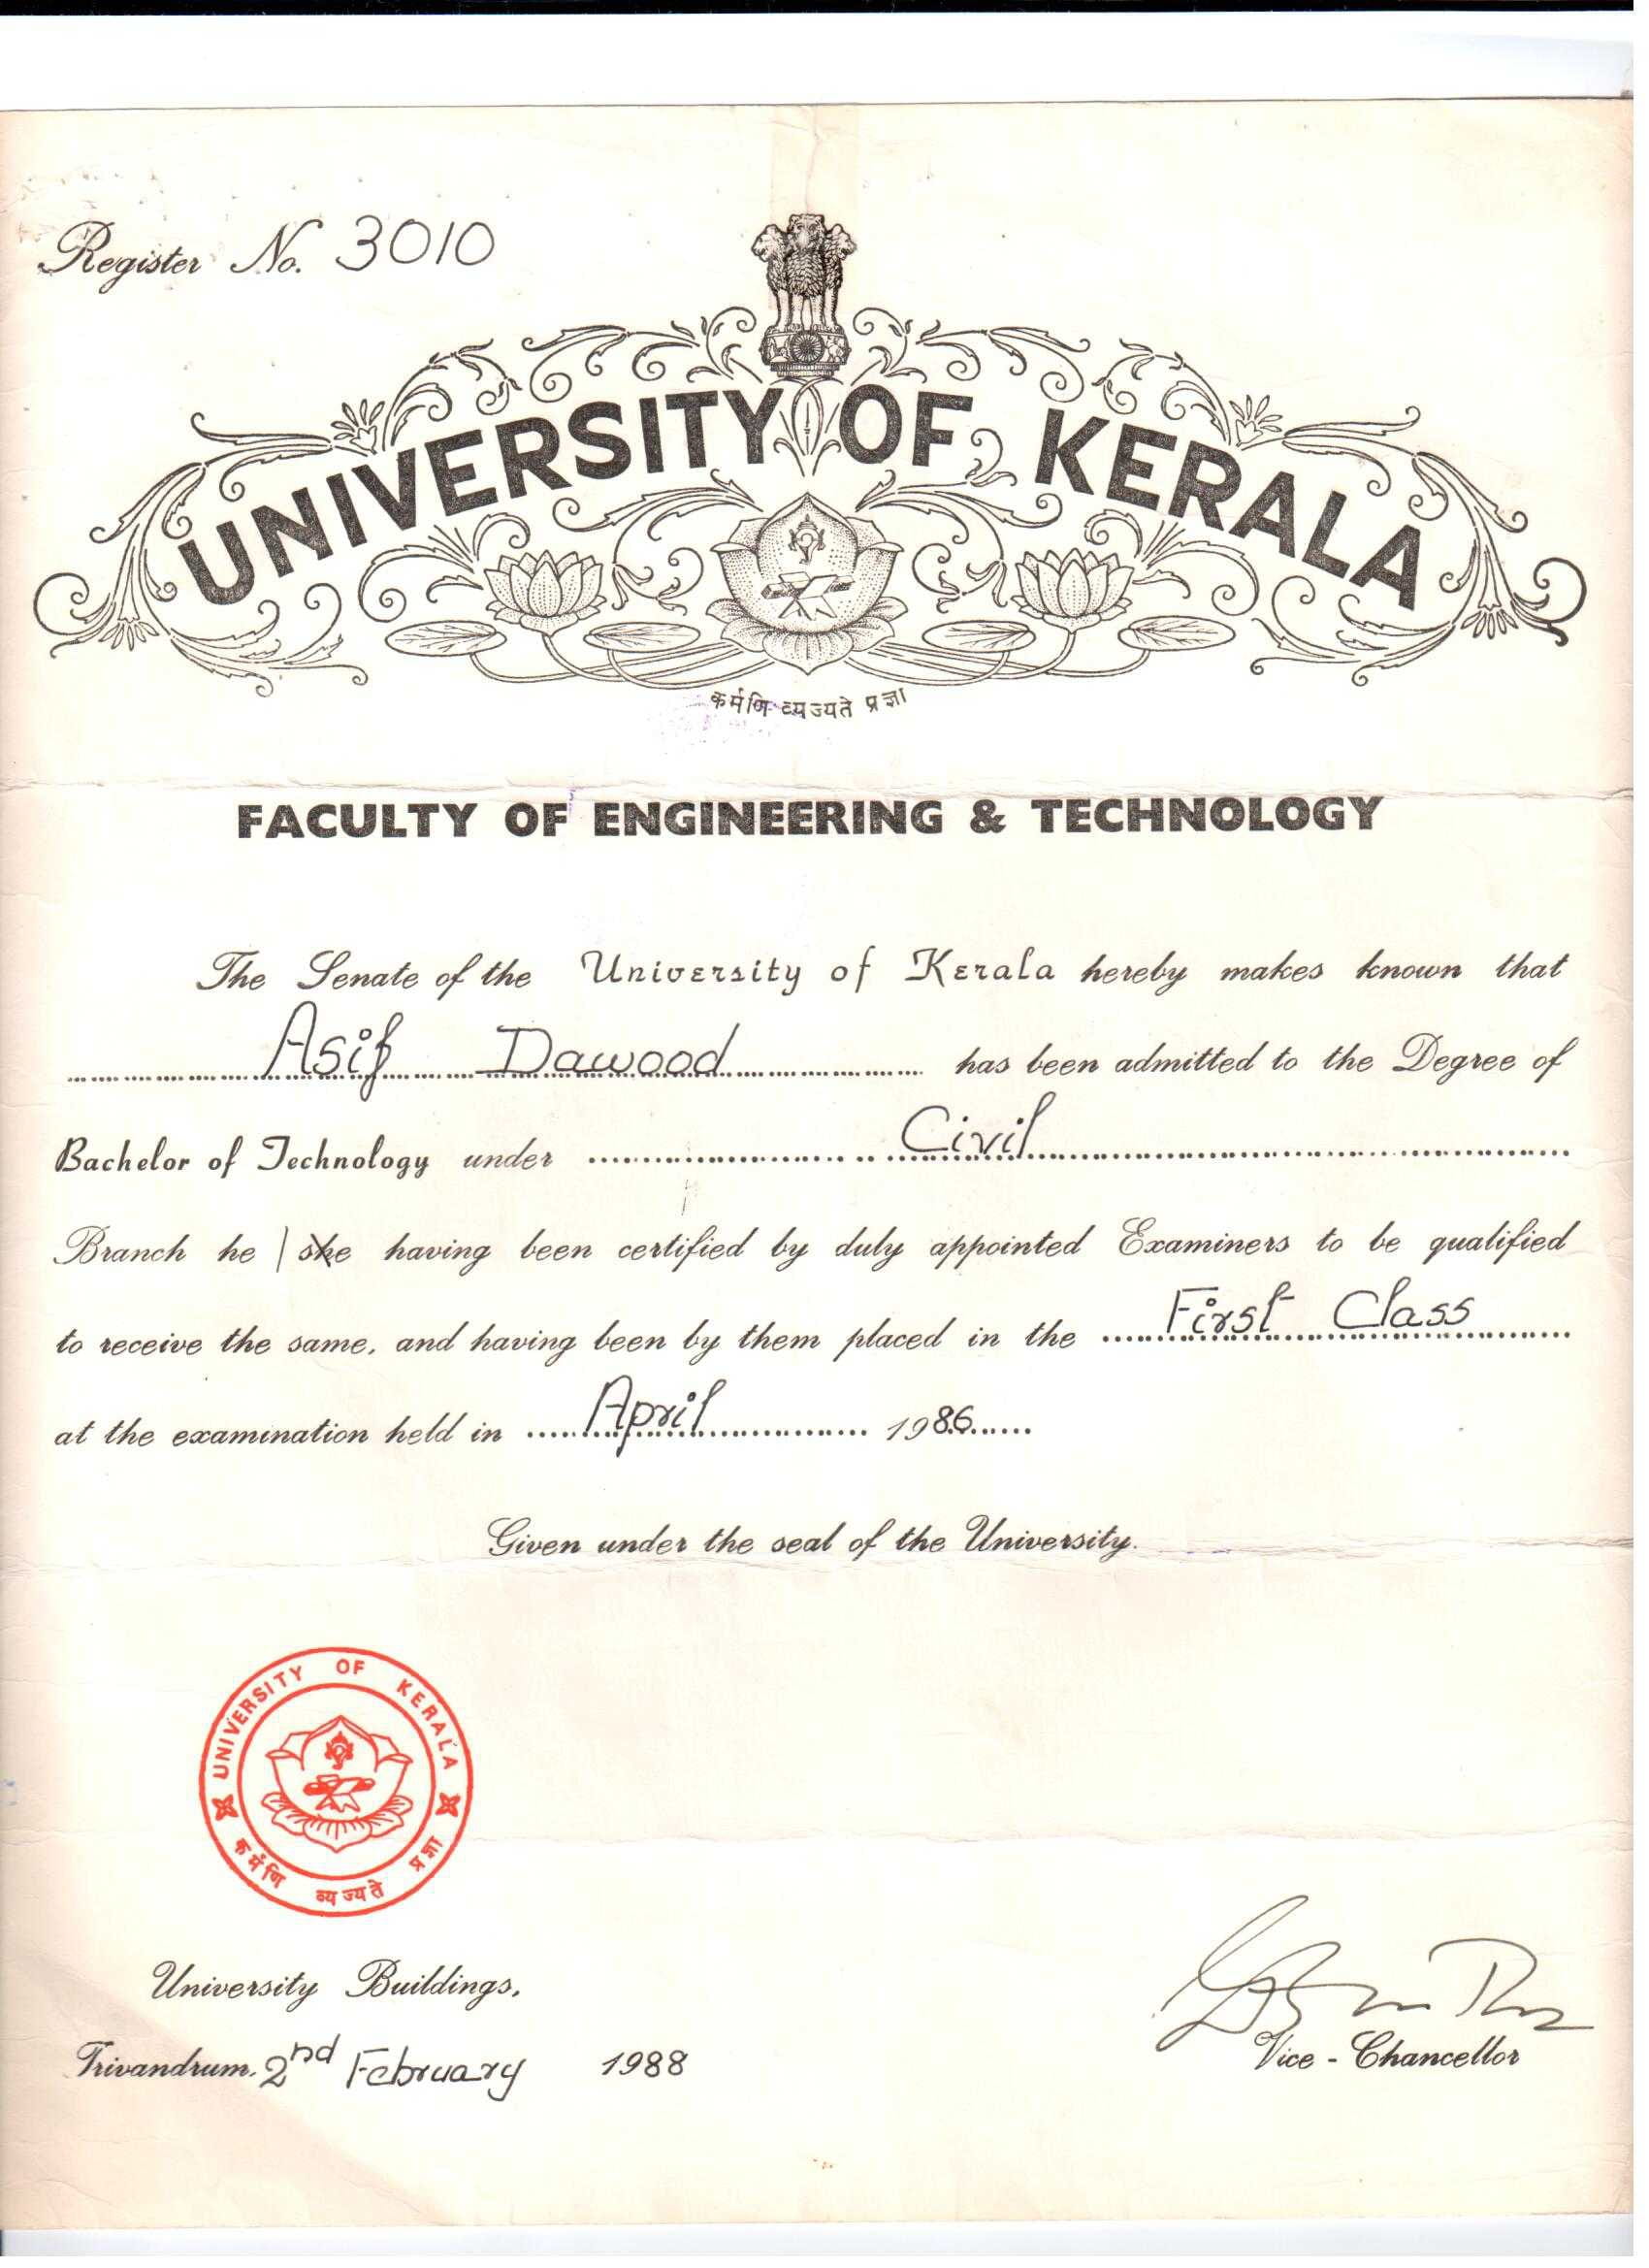 Register No. 3010
UNIVERSITY OF KERALA
कर्मणि व्यज्यते प्रज्ञा
FACULTY OF ENGINEERING & TECHNOLOGY
The Senate of the University of Kerala hereby makes known that
Asif Dawood has been admitted to the Degree of
Bachelor of Technology under Civil
Branch he / she having been certified by duly appointed Examiners to be qualified
to receive the same, and having been by them placed in the First Class
at the examination held in April 1986
Given under the seal of the University.
UNIVERSITY OF KERALA
कर्मणि व्यज्यते प्रज्ञा
University Buildings,
Trivandrum. 2nd February 1988
Vice - Chancellor